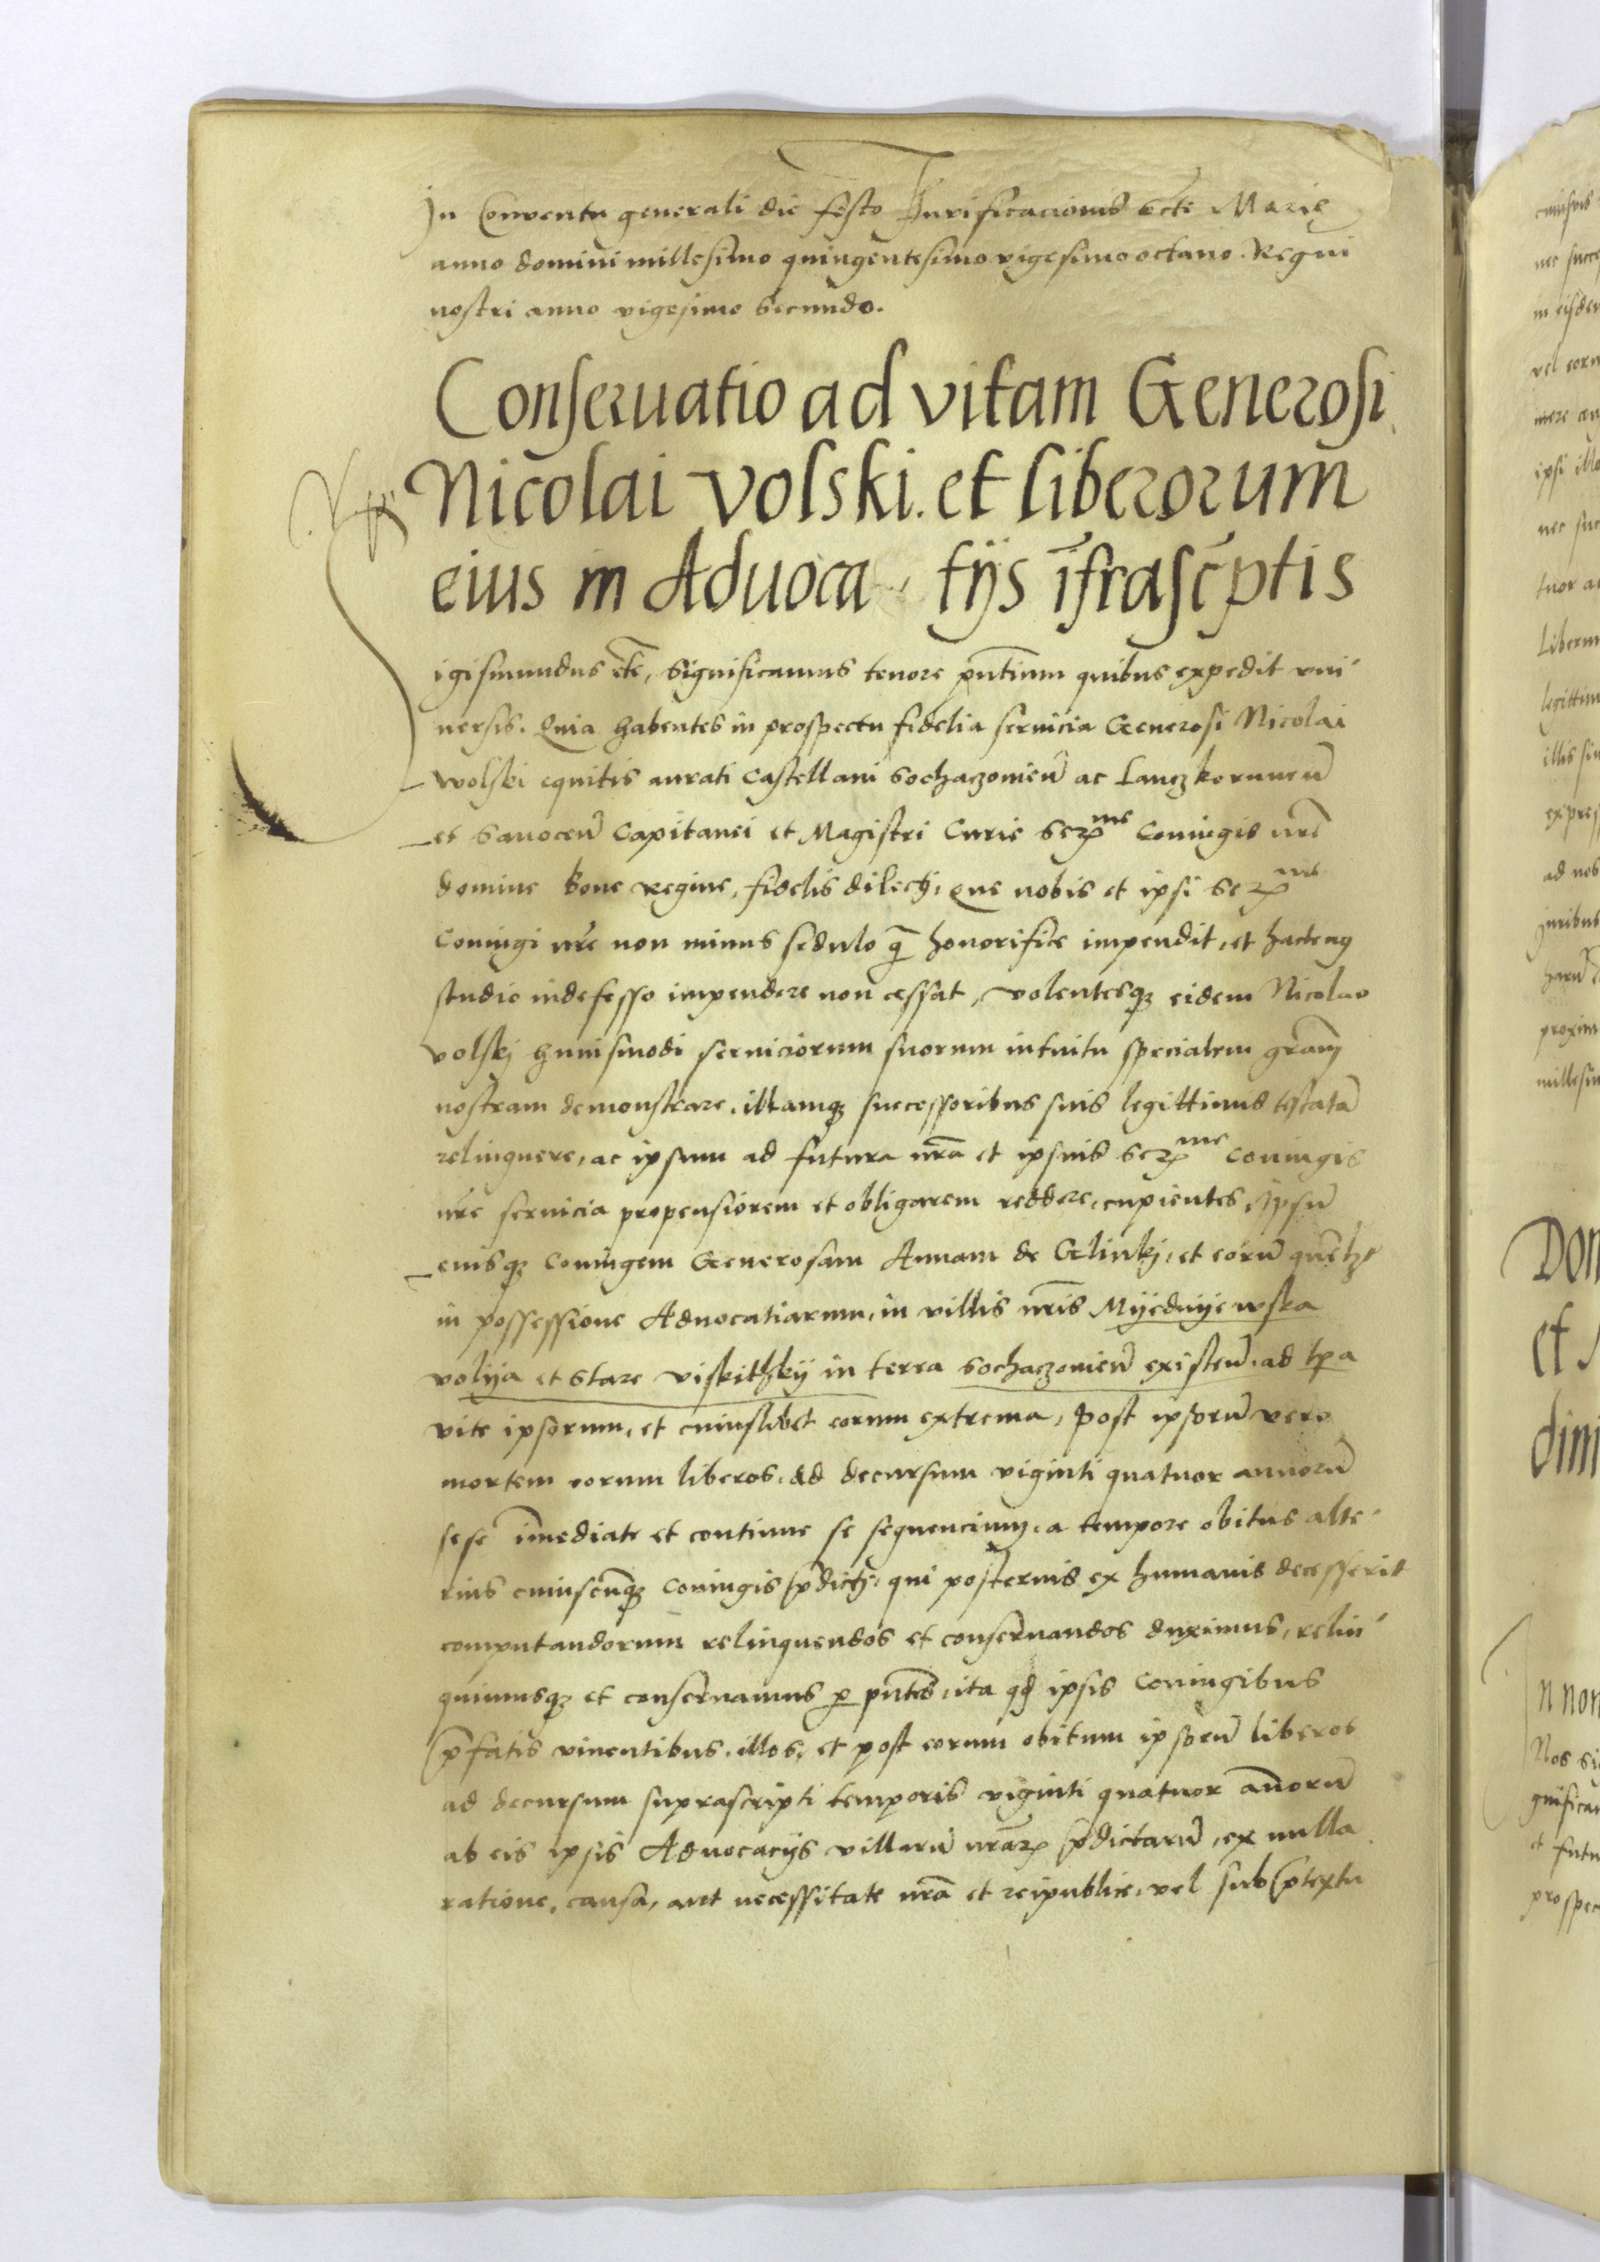 In Conventu generali die festo Purificacionis scte Marie
anno domini millesimo quingentesimo vigesimo octavo. Regni
nostri anno vigesimo secundo.
Conseruatio ad vitam Generosi
Nicolai Volski. et liberorum
eius in Aduoca tijs īfrascptis
igismundus etc, Significamus tenore pntium quibus expedit vni
uersis. Quia habentes in prospectu fidelia seruicia Generosi Nicolai
wolski equitis aurati Castellani Sochaczouien ac Lanczkorunen
et Sanocen Capitanei et Magistri Curie Serme Coniugis nre
domine Bone Regine, fidelis dilecti, que nobis et ipsi Serme
Coniugi nre non minus sedulo q honorifice impendit, et hactenus
studio indefesso impendere non cessat, volentesq eidem Nicolao
volskj huiusmodi seruiciorum suorum intuitu specialem gram
nostram demonstrare, illamq successoribus suis legittimis testatā
relinquere, ac ipsum ad futura nra et ipsius Serme Coniugis
nre seruicia propensiorem et obligatiorem reddere cupientes, Ipsū
eiusq Coniugem Generosam Annam de Glinkj, et eorū quēlz
in possessione Aduocatiarum, in villis nris Myeduyewska
volya et Stare viskithky in terra Sochaczouien existen, ad tpa
vite ipsorum, et cuiuslibet eorum extrema, post ipsorū vero
mortem eorum liberos, ad decursum viginti quatuor annorū
sese īmediate et continue se sequencium, a tempore obitus alte
rius cuiuscūq Coniugis pdicti, qui posterius ex humanis decesserit
computandorum relinquendos et conseruandos duximus, relin
quimusq et conseruamus p pntes, ita qd ipsis Coniugibus
pfatis viuentibus, illos, et post eorum obitum ipsorū liberos
ad decursum suprascripti temporis viginti quatuor annorū
ab eis ipsis Aduocacijs villarū nrar pdictarū, ex nulla
ratione, causa, aut necessitate nra et reipublice, vel sub ptextu